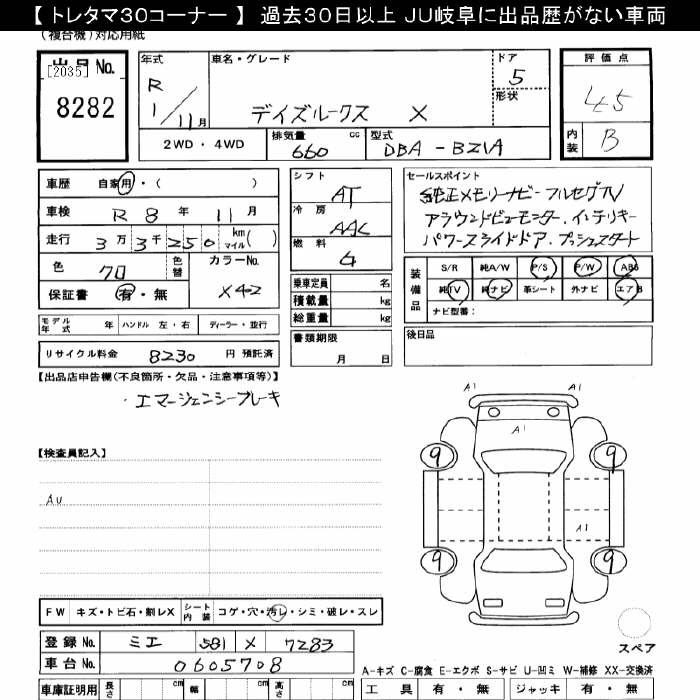 【 トレタマ30コーナー 】 過去30日以上 JU岐阜に出品歴がない車両
(複合機)対応用紙
出品 No.
[2035]
8282
年式
R
1/11月
車名・グレード
デイズルークス X
ドア
5
形状
2WD・4WD
排気量 cc
660
型式
DBA-BZ1A
評価点
4.5
内装
B
車歴 自家用・( )
車検 R 8 年 11 月
走行 3万3千250 km マイル( )
色 クロ
色替
カラーNo.
X42
保証書 有・無
シフト
AT
冷房
AAC
燃料
G
乗車定員 名
積載量 kg
総重量 kg
書類期限
月 日
セールスポイント
純正メモリーナビ-フルセグTV
アラウンドビューモニター.インテリキー
パワースライドドア.プッシュスタート
装備品
S/R 純A/W P/S P/W ABS
純TV 純ナビ 革シート 外ナビ エアB
ナビ型番:
モデル年式 年 ハンドル 左・右 ディーラー・並行
リサイクル料金 8230 円 預託済
後日品
【出品店申告欄(不良箇所・欠品・注意事項等)】
・エマージェンシーブレーキ
【検査員記入】
AU
A1 A1
A1
9 9
A1
9 9
スペア
FW キズ・トビ石・割レX シート内装 コゲ・穴・汚レ・シミ・破レ・スレ
登録 No. ミエ 581 X 7283
車台 No. 0605708
A-キズ C-腐食 E-エクボ S-サビ U-凹ミ W-補修 XX-交換済
車庫証明用 長さ cm 幅 cm 高さ cm
工具 有・無 ジャッキ 有・無